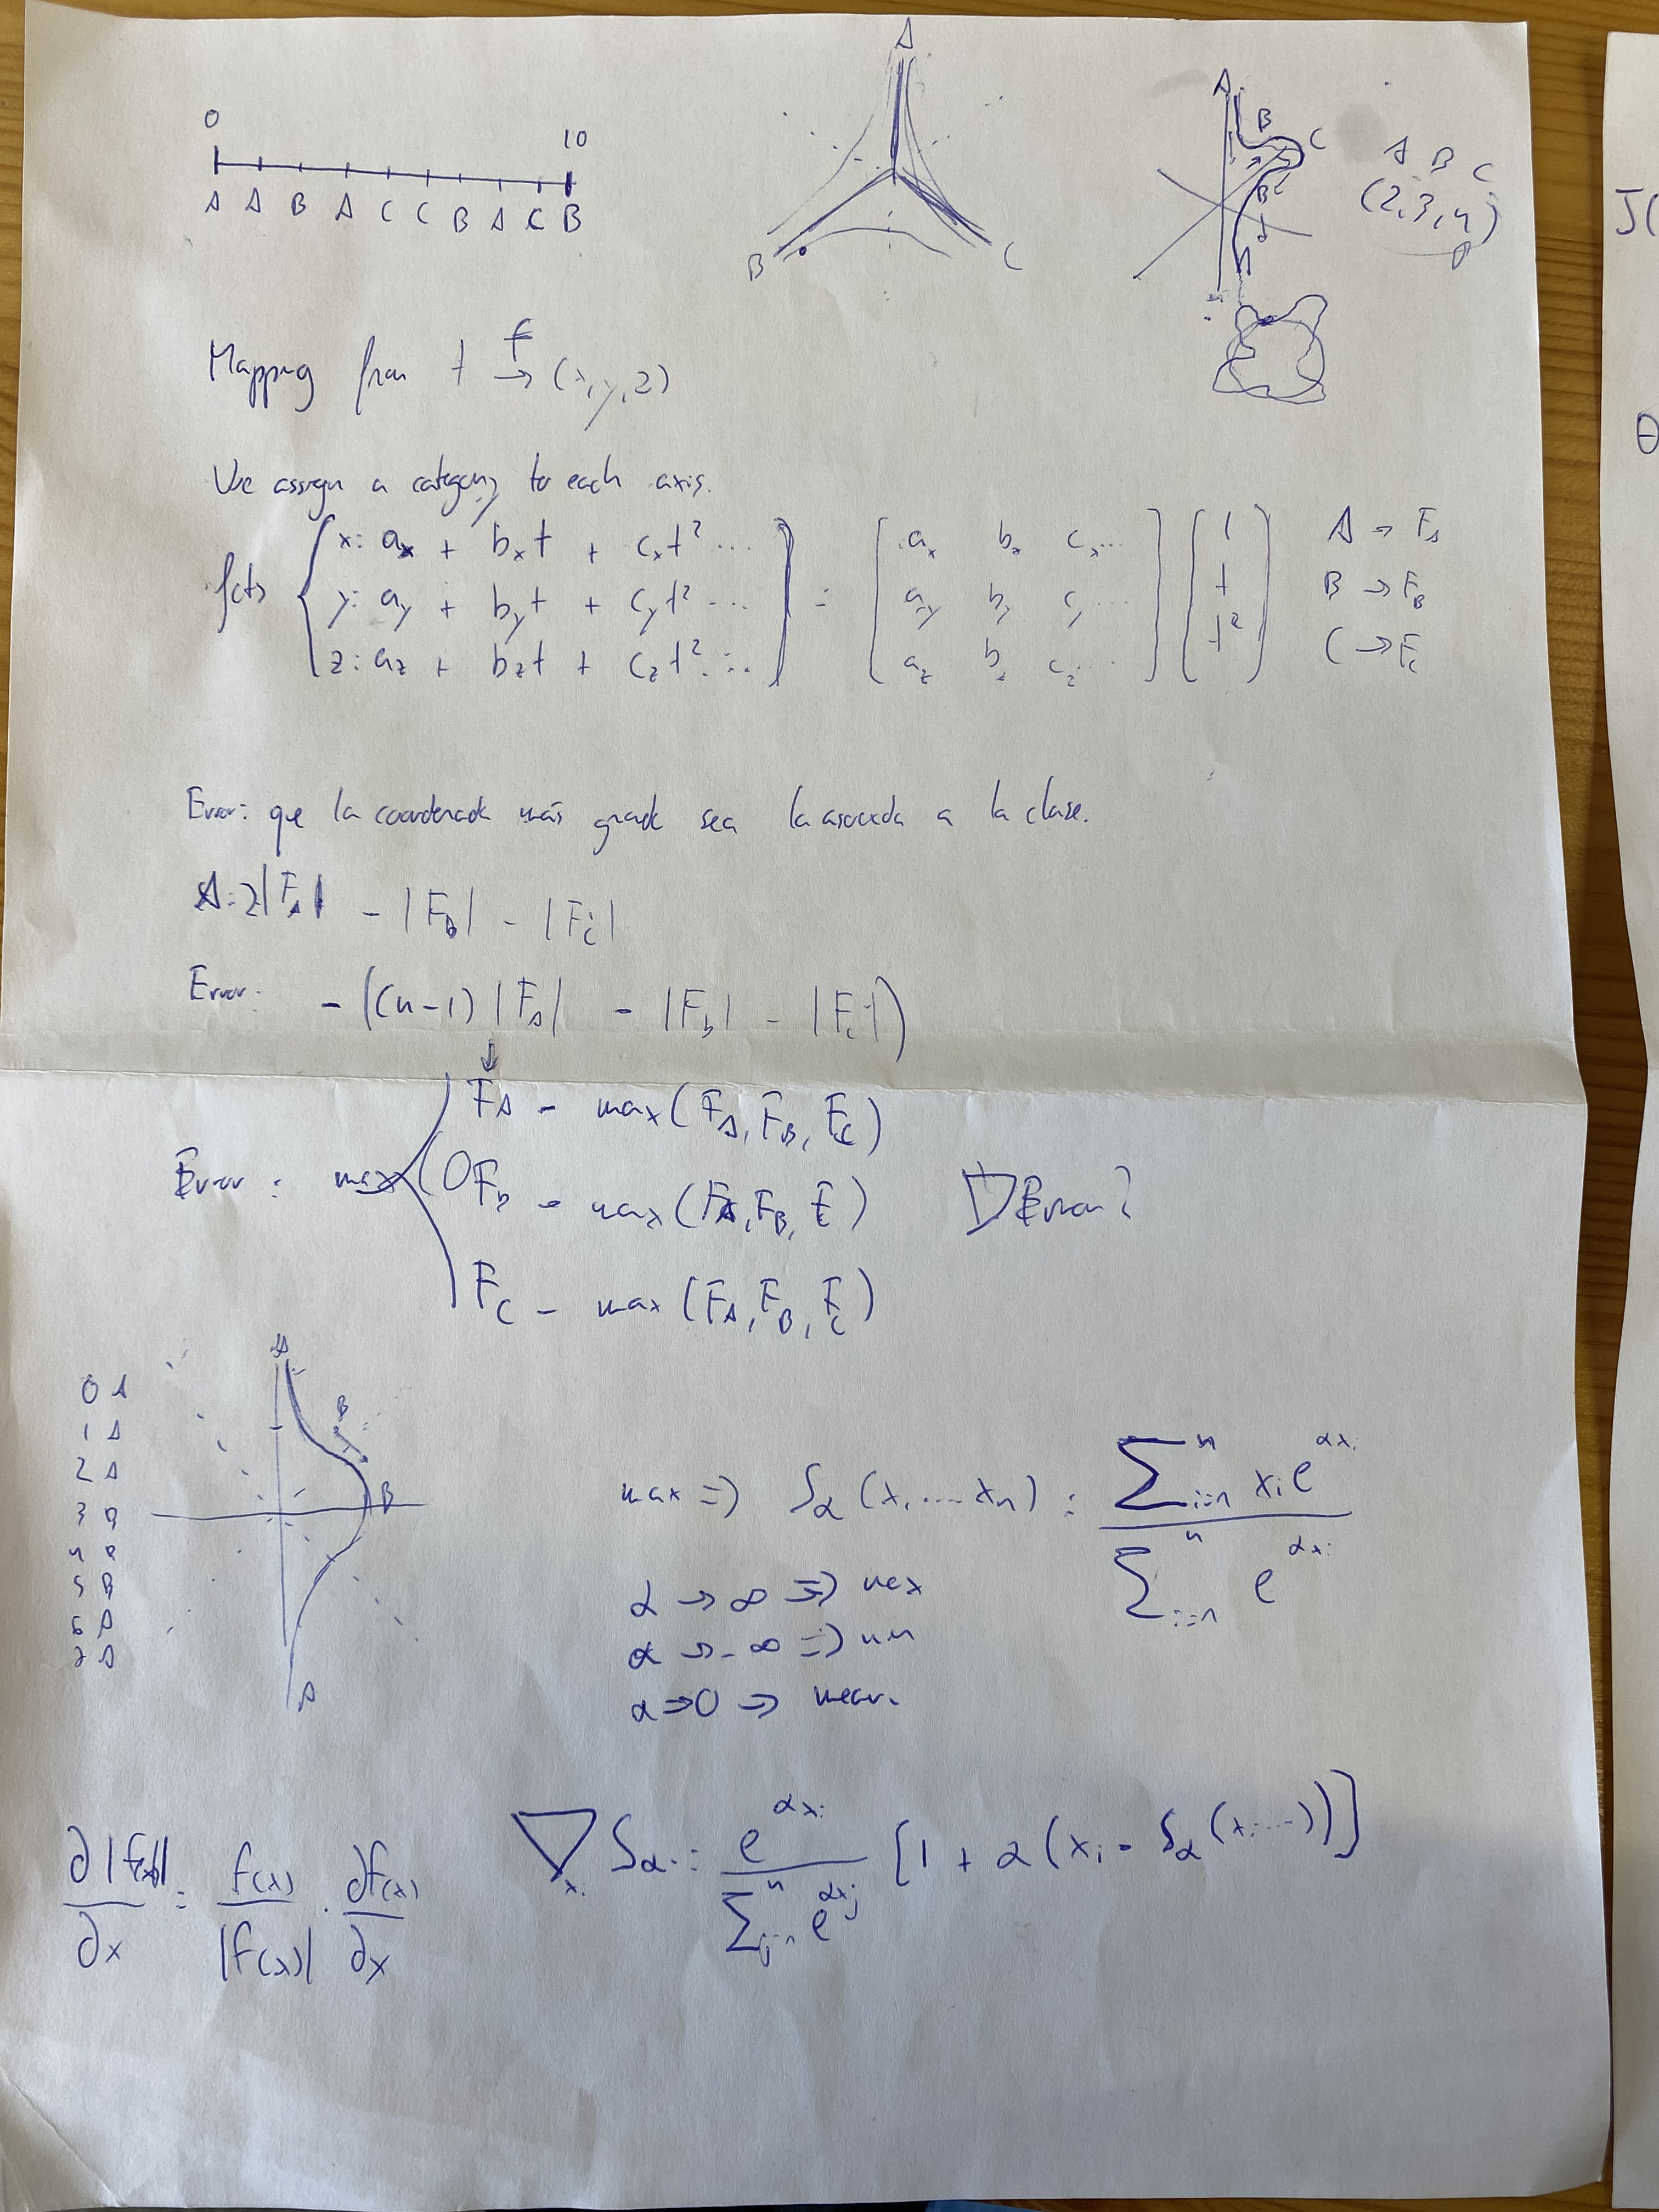 0 10
A A B A C C B A C B
A
B C
A B C
B
A B C
(2,3,4)
Mapping from t f→ (x,y,z)
We assign a category to each axis.
f(t) { x: a_x + b_x t + c_x t² ... = [ a_x b_x c_x ... ] [ 1 ] A → F_A
y: a_y + b_y t + c_y t² ... a_y b_y c_y ... t B → F_B
z: a_z + b_z t + c_z t² ... a_z b_z c_z ... t² C → F_C
Error: que la coordenada más grande sea la asociada a la clase.
A: 2|F_A| - |F_B| - |F_C|
Error: -((n-1)|F_A| - |F_B| - |F_C|)
↓
F_A - max(F_A, F_B, F_C)
Error: max (0 F_B - max(F_A, F_B, F_C) ∇Error?
F_C - max(F_A, F_B, F_C)
A
0 A
1 A
2 A
3
4
5 B
6 A
7 A
B
B
A
max ⇒ S_α(x_1 ... x_n) = Σ_{i=1}^n x_i e^{αx_i} / Σ_{i=1}^n e^{αx_i}
α → ∞ ⇒ max
α → -∞ ⇒ min
α → 0 ⇒ mean
∂|f(x)|/∂x = f(x)/|f(x)| · ∂f(x)/∂x
∇_{x_i} S_α = e^{αx_i} / Σ_{j=1}^n e^{αx_j} [1 + α(x_i - S_α(x_i ...))]
J(
θ